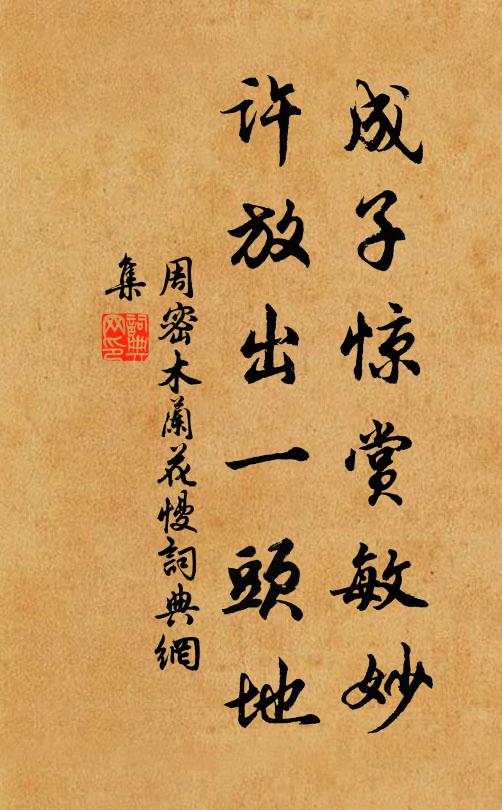 成子惊赏敏妙
许放出一頭地
周密木蘭花慢詞典網
集
詞典
网印